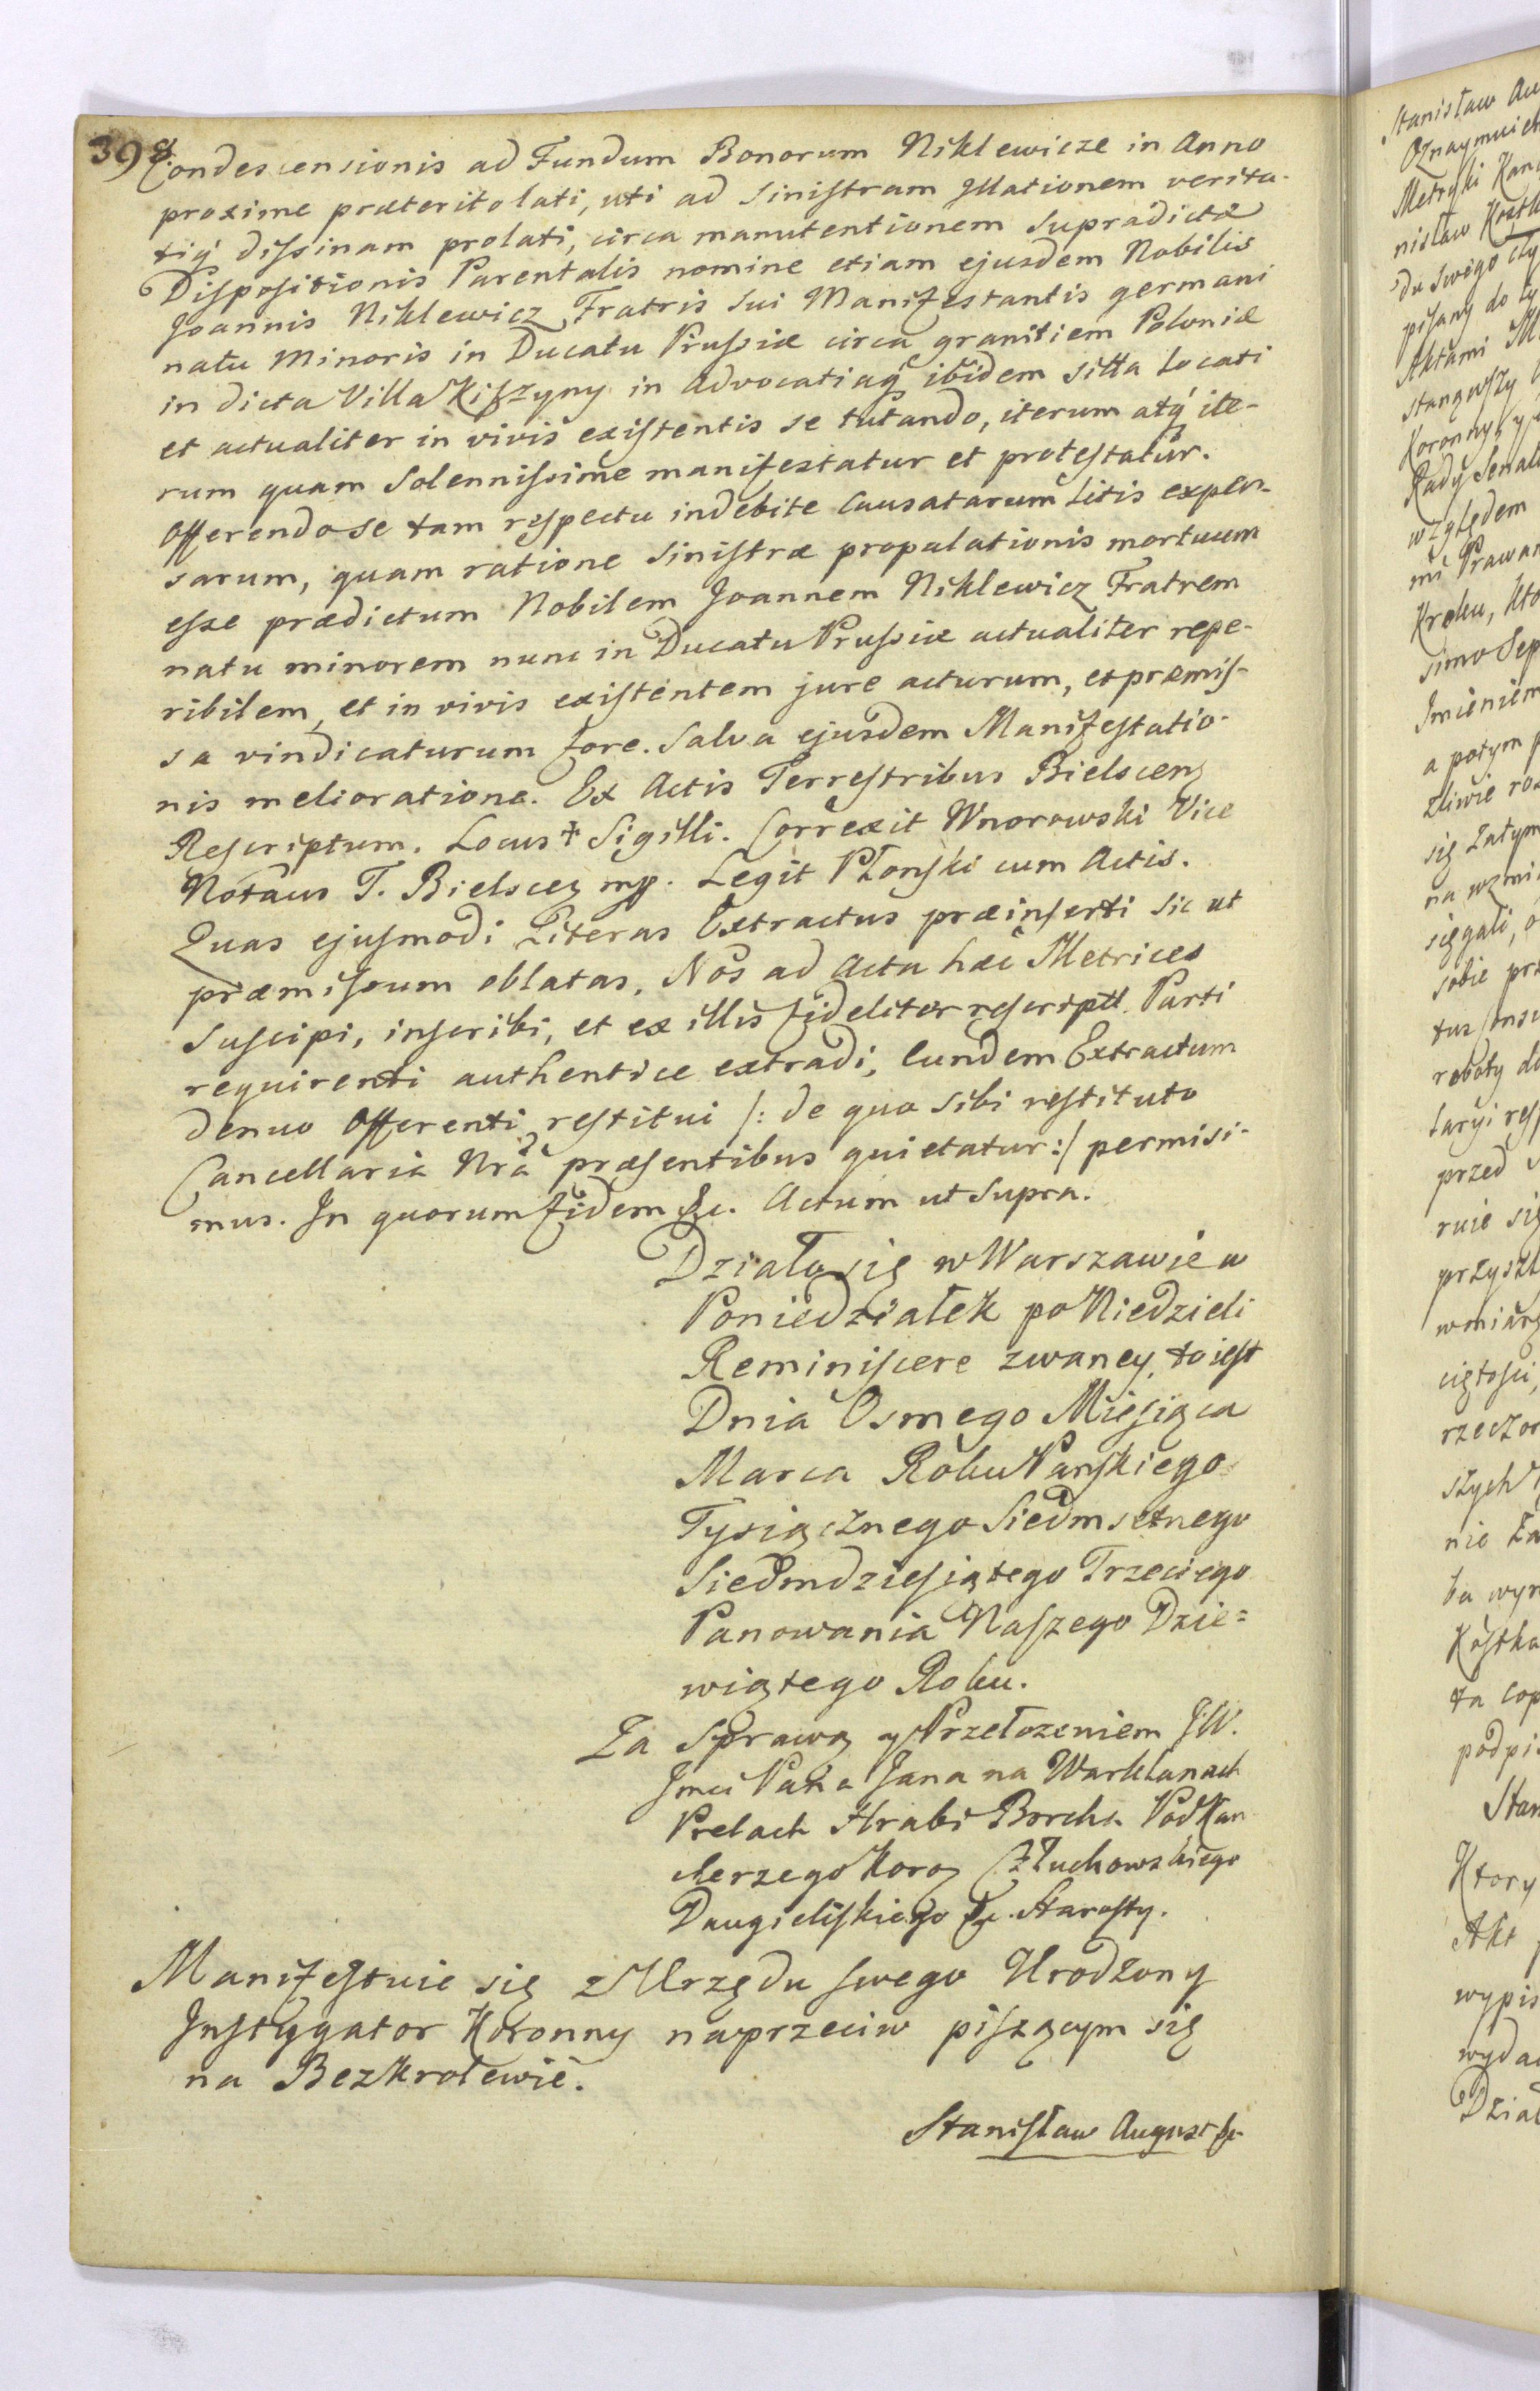 398.
Condescensionis ad Fundum Bonorum Niklewicze in Anno
proxime præterito lati, uti ad sinistram Illationem verita-
tiq́ dissinam prolati, circa manutentionem supradictæ
Dispositionis Parentalis nomine etiam ejusdem Nobilis
Joannis Niklewicz Fratris sui Manifestantis germani
natu Minoris in Ducatu Prussiæ circa granitiem Poloniæ
in dicta Villa Kiszyny in Advocatiaq́ ibidem sitta Locati
et actualiter in vivis existentis se tutando, iterum atq́ ite-
rum quam Solennissime manifestatur et protestatur.
Offerendo se tam respectu indebite causatarum Litis expen-
sarum, quam ratione sinistræ propalationis mortuum
esse prædictum Nobilem Joannem Niklewicz Fratrem
natu minorem nunc in Ducatu Prussiæ actualiter repe-
ribilem, et in vivis existentem jure acturum, et præmis-
sa vindicaturum fore. Salva ejusdem Manifestatio-
nis melioratione. Ex Actis Terrestribus Bielscenz
Rescriptum. Locus + Sigilli. Correxit Wnorowski Vice
Notaus T. Bielscez mp. Legit Płonski cum Actis.
Quas ejusmodi Literas Extractus præinserti sic ut
præmissum oblatas, Nos ad Acta hæc Metrices
suscipi, inscribi, et ex illis fideliter rescriptt. Parti
requirenti authentice extradi, Eundem Extractum
denuo Offerenti restitui /: de quo sibi restituto
Cancellaria Nrã præsentibus quietatur :/ permisi-
mus. In quorum fidem &c. Actum ut supra.
Działo się w Warszawie w
Poniedziałek po Niedzieli
Reminiscere zwaney, to iest
Dnia Osmego Miesiąca
Marca Roku Panskiego
Tysiącznego Siedmsetnego
Siedmdziesiątego Trzeciego
Panowania Naszego Dzie=
wiątego Roku.
Za Sprawą y Przełozeniem JW.
Jmci Pana Jana na Warklanach
Prelach Hrabi Borcha PodKan
clerzego Koroz Człuchowskiego
Daugieliskiego &c. Starosty.
Manifestuie się z Urzędu swego Urodzony
Instygator Koronny naprzeciw piszącym się
na Bezkrolewie.
Stanisław August Kr
Stanisław Au
Oznaymuie
Metryki Kan
nisław Kostk
du swego
pisany do
Aktami
Koronny, y
Rady
względem
mi Prawam
Kroku, kto
simo Sep
Imieniem
a potym p
zliwie roz
się zatym
na wzmi
sięgali, o
sobie prz
roboty do
przed
ruie się
przyszł
w miarę
ciętosci,
rzeczon
szych
nie za
ba wyr
Kostka
ta cop
podpis
Stan
Ktory
Akt
wypis
wydac
Dział